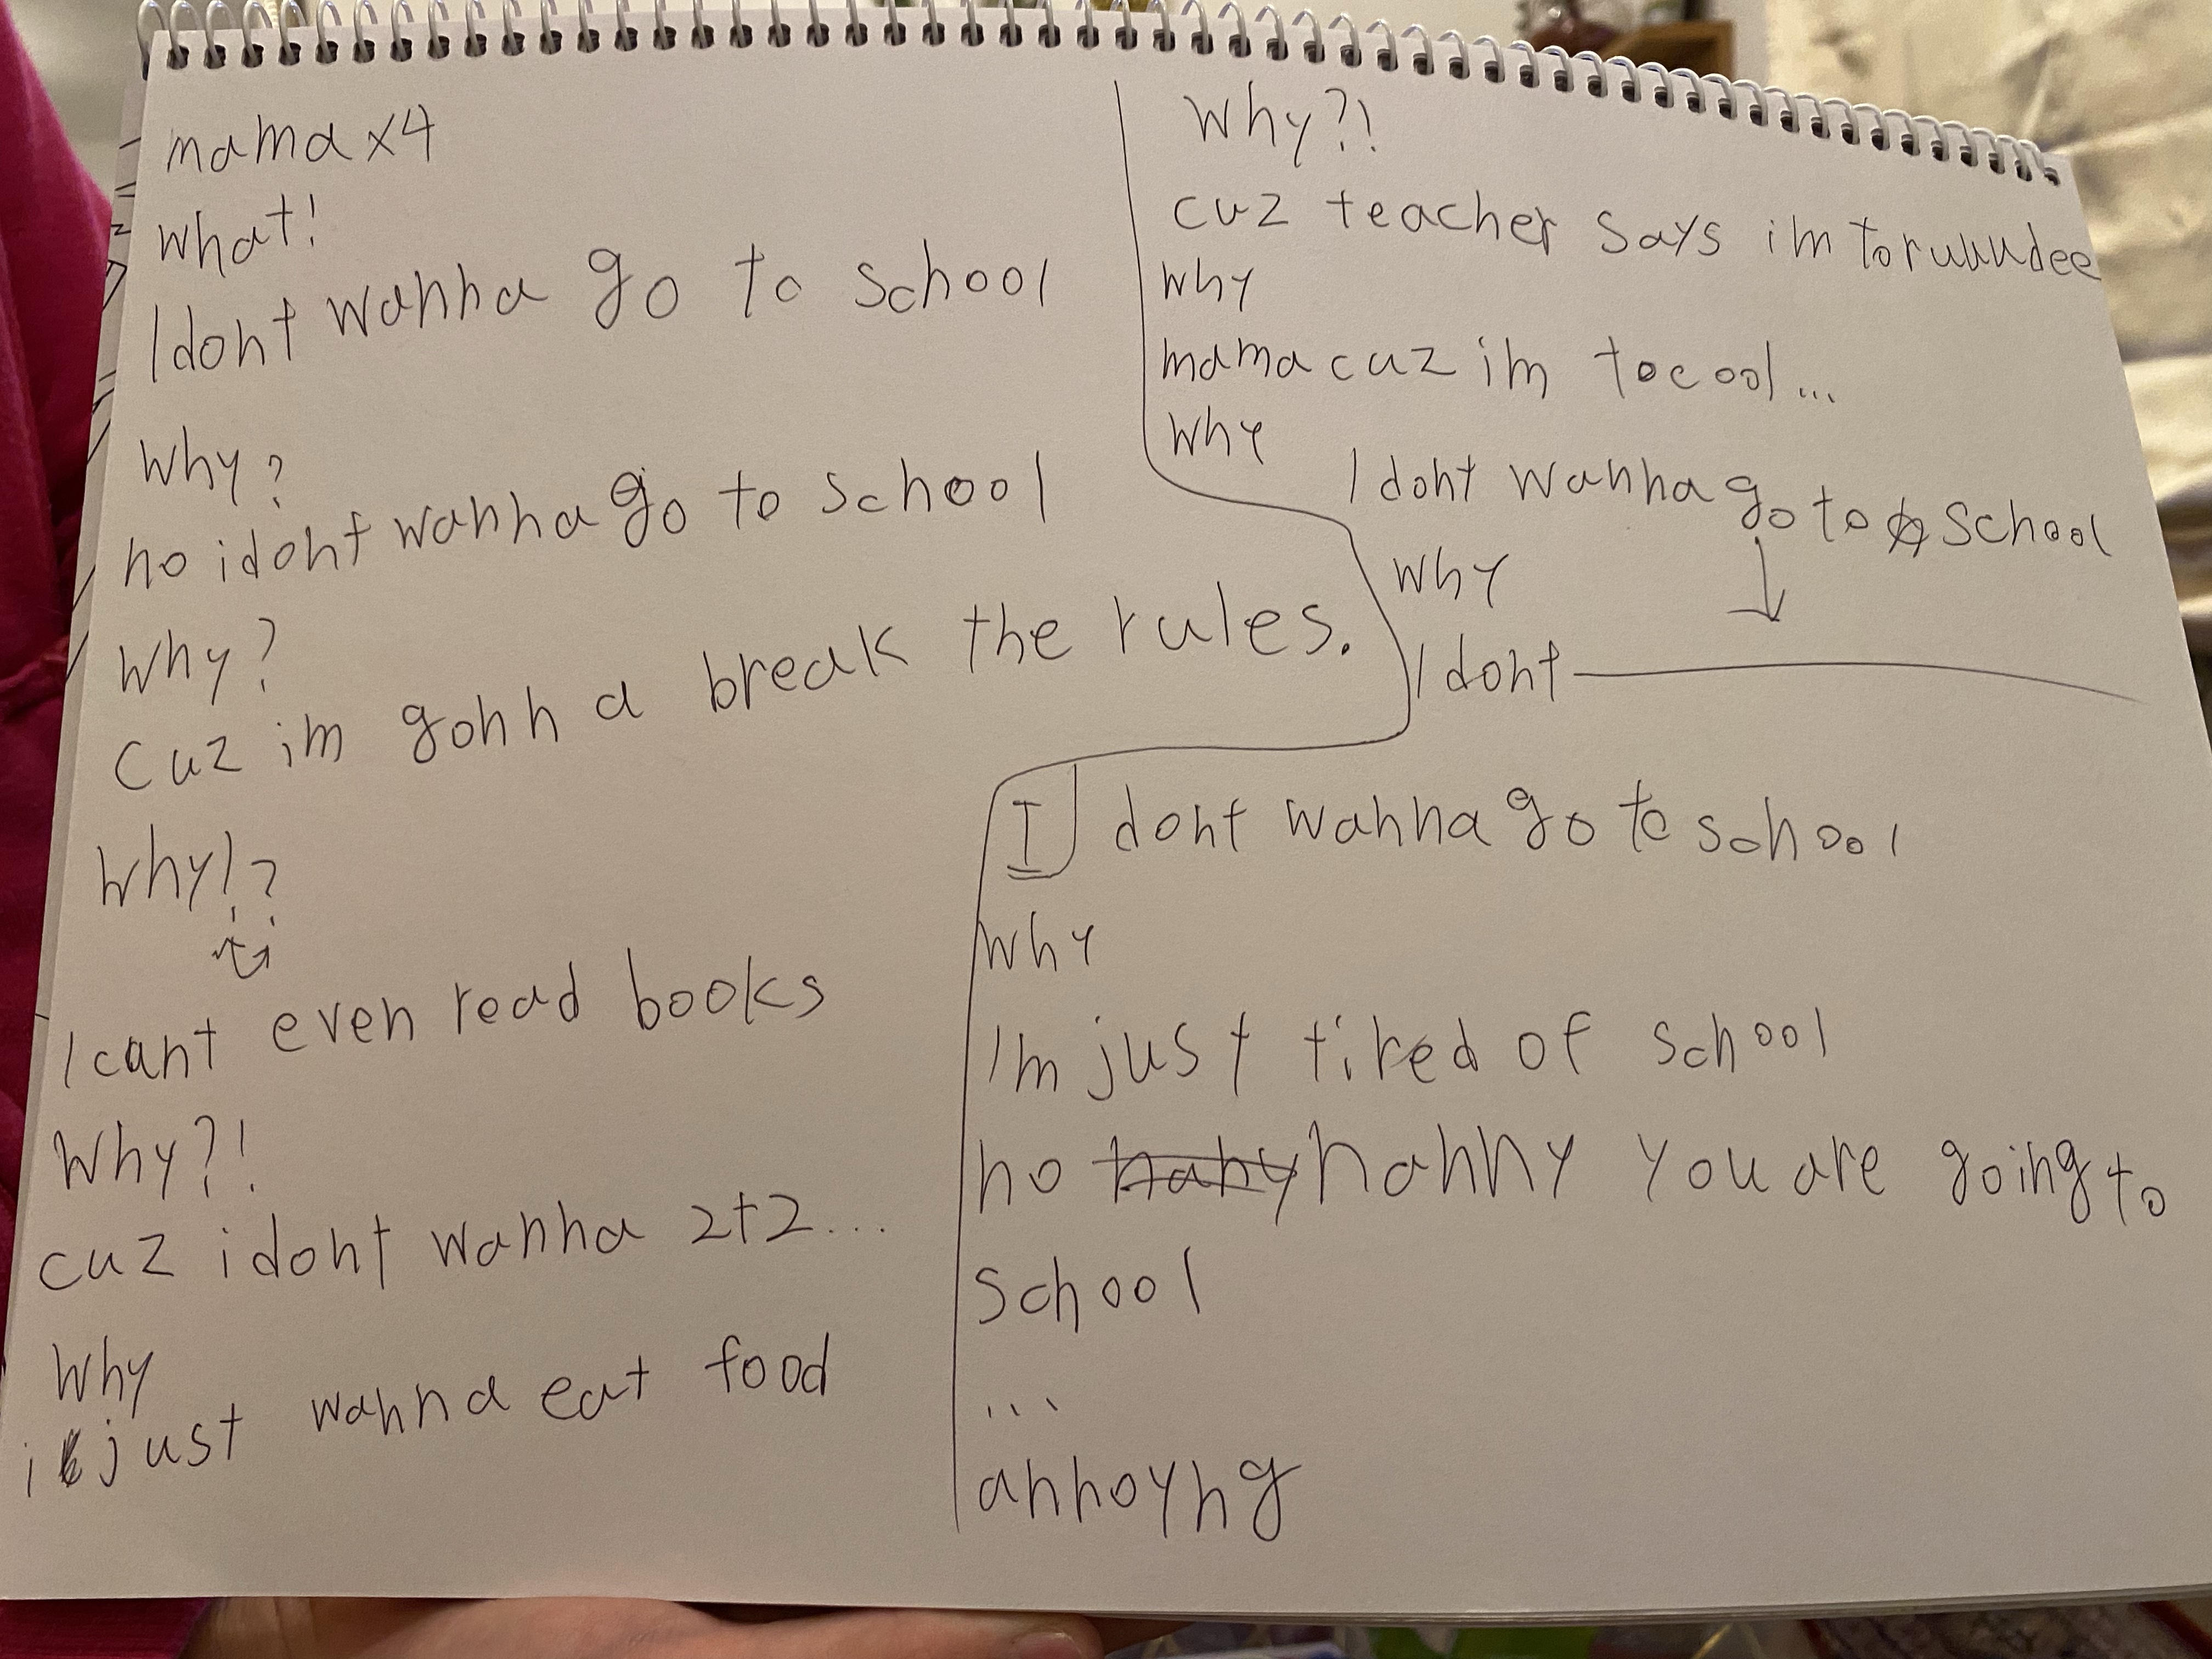 mama x4
What!
I dont wanna go to school
Why?
no i dont wanna go to school
Why?
Cuz im gonna break the rules.
Why!?
I cant even read books
Why?!
cuz i dont wanna 2+2...
Why
i just wanna eat food
Why?!
cuz teacher says im to ruuudee
Why
mama cuz im to cool...
Why
I dont wanna go to school
Why
I dont
I dont wanna go to school
Why
Im just tired of school
no nanny you are going to
school
...
annoyng